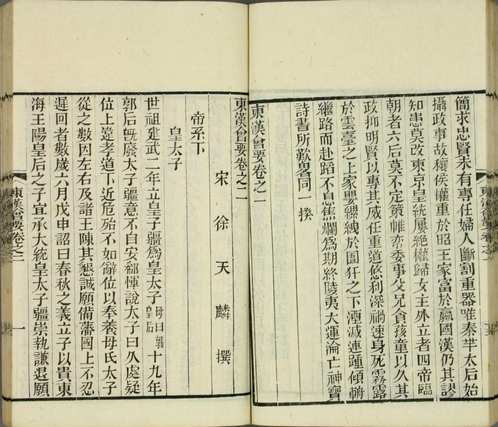 簡求忠賢未有專任婦人斷割重器唯秦羋太后始
攝政事故穰侯權重於昭王家富於嬴國漢仍其謬
知患莫改東京皇統屢絕權歸女主外立者四帝臨
朝者六后莫不定策帷帟委事父兄貪孩童以久其
政抑明賢以專其威任重道悠利深禍速身死霧露
於雲臺之上家嬰縲紲於圄犴之下湮滅連踵傾輈
繼路而赴蹈不息燋爛爲期終陵夷大運淪亡神寶
詩書所歎畧同一揆
東漢會要卷之一
東漢會要卷之二
宋徐天麟撰
帝系下
皇太子
世祖建武二年立皇子疆爲皇太子母曰郭皇后十九年
郭后既廢太子疆意不自安郅惲說太子曰久處疑
位上違孝道下近危殆不如辭位以奉養母氏太子
從之數因左右及諸王陳其懇誠願備藩國上不忍
遲回者數歲六月戊申詔曰春秋之義立子以貴東
海王陽皇后之子宜承大統皇太子疆崇執謙退願
東漢會要卷之二
一